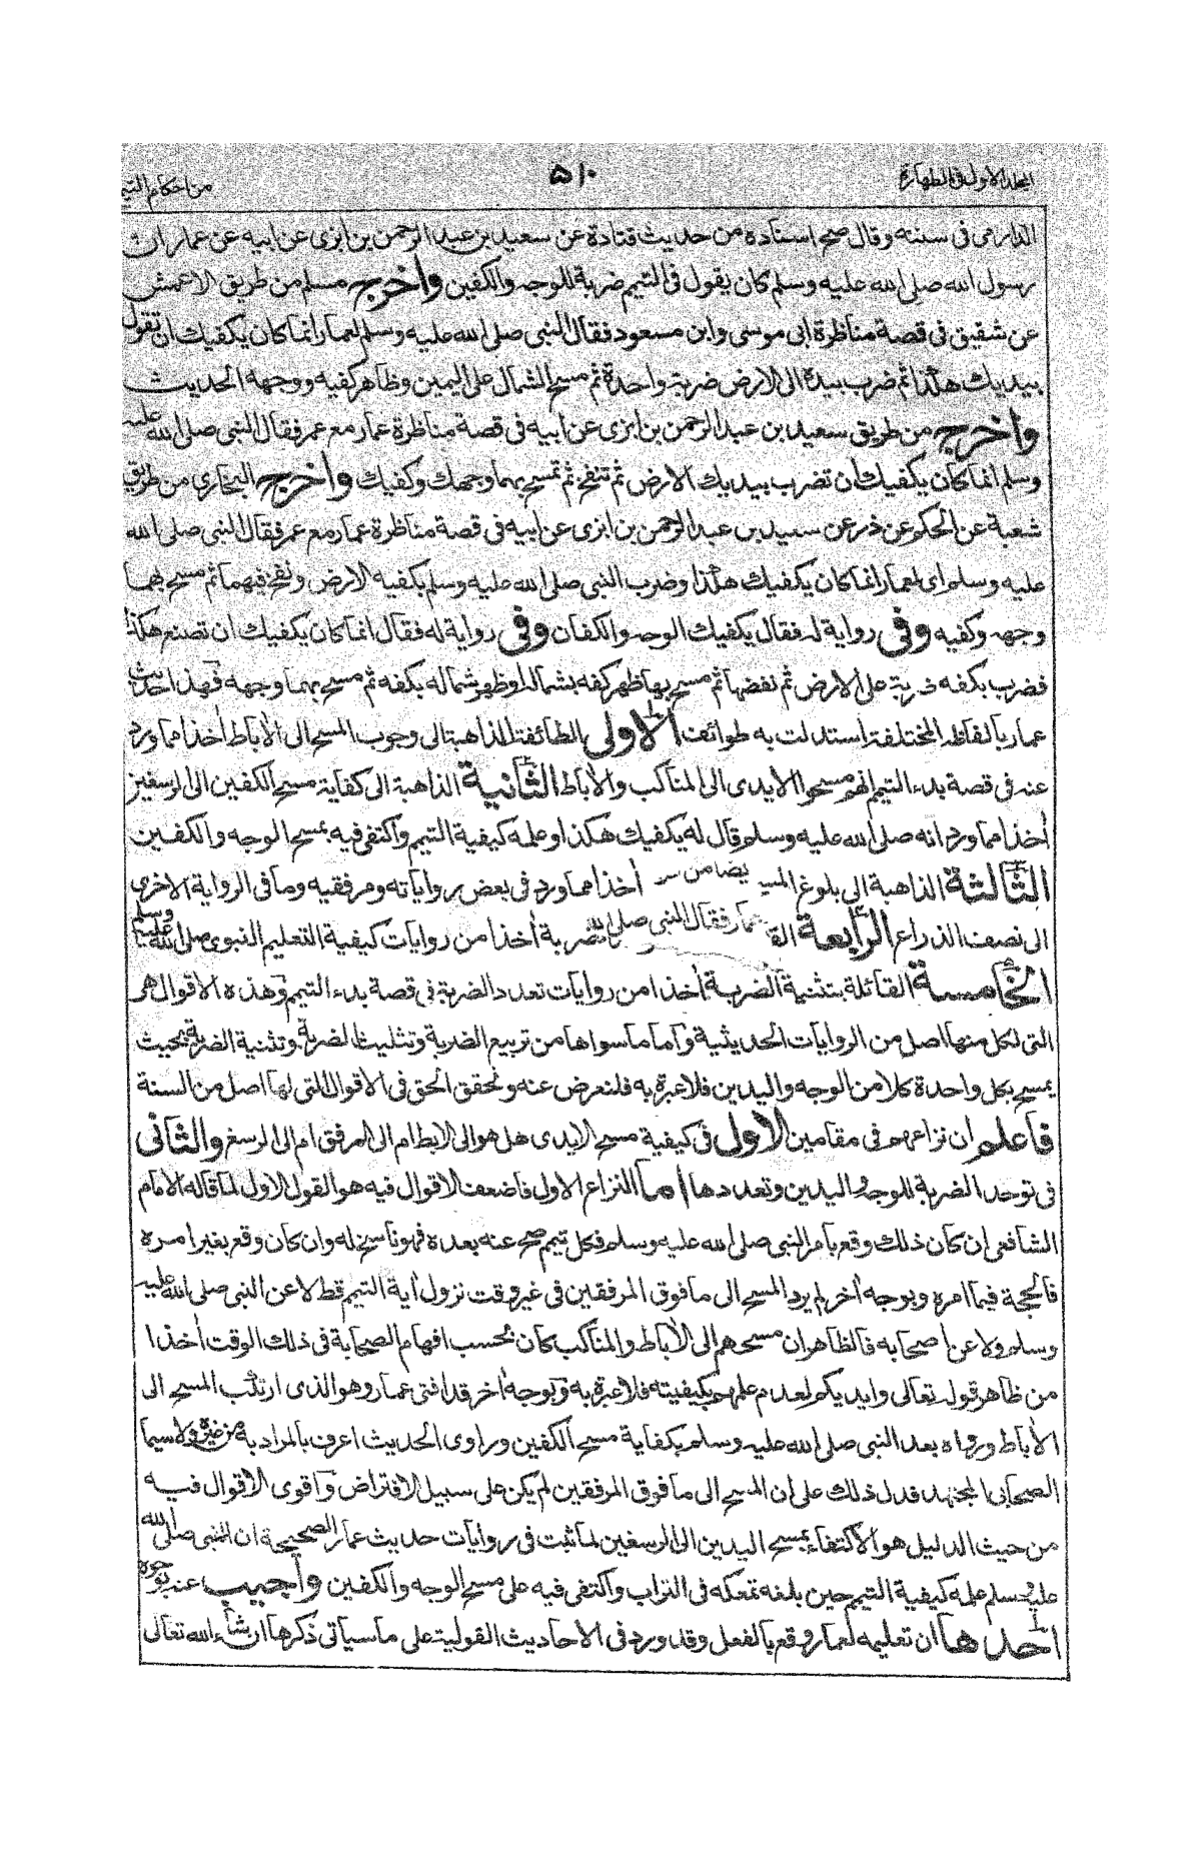 المجلد الاول فى الطهارة
۵۱۰
من احكام التيم
الدارمى فى سننه وقال صح اسناده من حديث قتادة عن سعيد بن عبد الرحمن بن ابزى عن ابيه عن عمار ان
رسول الله صلى الله عليه وسلم كان يقول فى التيمم ضربة للوجه والكفين واخرج مسلم من طريق الاعمش
عن شقيق فى قصة مناظرة ابى موسى وابن مسعود فقال النبى صلى الله عليه وسلم لعمار انما كان يكفيك ان تقول
بيديك هكذا ثم ضرب بيده الى الارض ضربة واحدة ثم مسح الشمال على اليمين وظاهر كفيه ووجهه الحديث
واخرج من طريق سعيد بن عبد الرحمن بن ابزى عن ابيه فى قصة مناظرة عمار مع عمر فقال النبى صلى الله عليه
وسلم انما كان يكفيك ان تضرب بيديك الارض ثم تنفخ ثم تمسح بهما وجهك وكفيك واخرج البخارى من طريق
شعبة عن الحكم عن ذر عن سعيد بن عبد الرحمن بن ابزى عن ابيه فى قصة مناظرة عمار مع عمر فقال النبى صلى الله
عليه وسلم اى لعمار انما كان يكفيك هكذا وضرب النبى صلى الله عليه وسلم بكفيه الارض ونفخ فيهما ثم مسح بهما
وجهه وكفيه وفى رواية له فقال يكفيك الوجه والكفان وفى رواية له فقال انما كان يكفيك ان تصنع هكذا
فضرب بكفه ضربة على الارض ثم نفضها ثم مسح بها ظهر كفه بشماله او ظهر شماله بكفه ثم مسح بهما وجهه فهذا حديث
عمار بالفاظه المختلفة استدلت به طوائف الاولى الطائفة الذاهبة الى وجوب المسح الى الاباط اخذا مما ورد
عنه فى قصة بدء التيمم انهم مسحوا الايدى الى المناكب والاباط الثانية الذاهبة الى كفاية مسح الكفين الى الرسغين
اخذا مما ورد انه صلى الله عليه وسلم قال له يكفيك هكذا وعلمه كيفية التيمم واكتفى فيه بمسح الوجه والكفين
الثالثة الذاهبة الى بلوغ المس اخذا مما ورد فى بعض رواياته ومرفقيه وما فى الرواية الاخرى
الى نصف الذراع الرابعة الق عمار فقال النبى صلى الله ضربة اخذا من روايات كيفية التعليم النبوى صلى الله عليه وسلم
الخامسة القائلة بتثنية الضربة اخذا من روايات تعدد الضربة فى قصة بدء التيمم وهذه الاقوال هى
التى لكل منها اصل من الروايات الحديثية واما ما سواها من تربيع الضربة وتثليث الضربة وتثنية الضربة بحيث
يمسح بكل واحدة كلا من الوجه واليدين فلا عبرة به فلنعرض عنه ونحقق الحق فى الاقوال التى لها اصل من السنة
فاعلم ان نزاعهم فى مقامين الاول فى كيفية مسح الايدى هل هو الى الابط ام الى المرفق ام الى الرسغ والثانى
فى توحد الضربة للوجه واليدين وتعددها اما النزاع الاول فاضعف الاقوال فيه هو القول الاول لما قاله الامام
الشافعى ان كان ذلك وقع بامر النبى صلى الله عليه وسلم فكل تيمم صح عنه بعده فهو ناسخ له وان كان وقع بغير امره
فالحجة فيما امره وبوجه اخر لم يرد المسح الى ما فوق المرفقين فى غير وقت نزول اية التيمم قط لا عن النبى صلى الله عليه
وسلم ولا عن اصحابه فالظاهر ان مسحهم الى الاباط والمناكب كان بحسب افهام الصحابة فى ذلك الوقت اخذا
من ظاهر قوله تعالى وايديكم لعدم علمهم بكيفيته فلا عبرة به وبوجه اخر قد افتى عمار وهو الذى ارتكب المسح الى
الاباط ورواه بعد النبى صلى الله عليه وسلم بكفاية مسح الكفين وراوى الحديث اعرف بالمراد به من غيره ولا سيما
الصحابى المجتهد فدل ذلك على ان المسح الى ما فوق المرفقين لم يكن على سبيل الافتراض واقوى الاقوال فيه
من حيث الدليل هو الاكتفاء بمسح اليدين الى الرسغين لما ثبت فى روايات حديث عمار الصحيحة ان النبى صلى الله
عليه وسلم علمه كيفية التيمم حين بلغه تمعكه فى التراب واكتفى فيه على مسح الوجه والكفين واجيب عنه بوجوه
احدها ان تعليمه لعمار وقع بالفعل وقد ورد فى الاحاديث القولية على ما سياتى ذكرها ان شاء الله تعالى